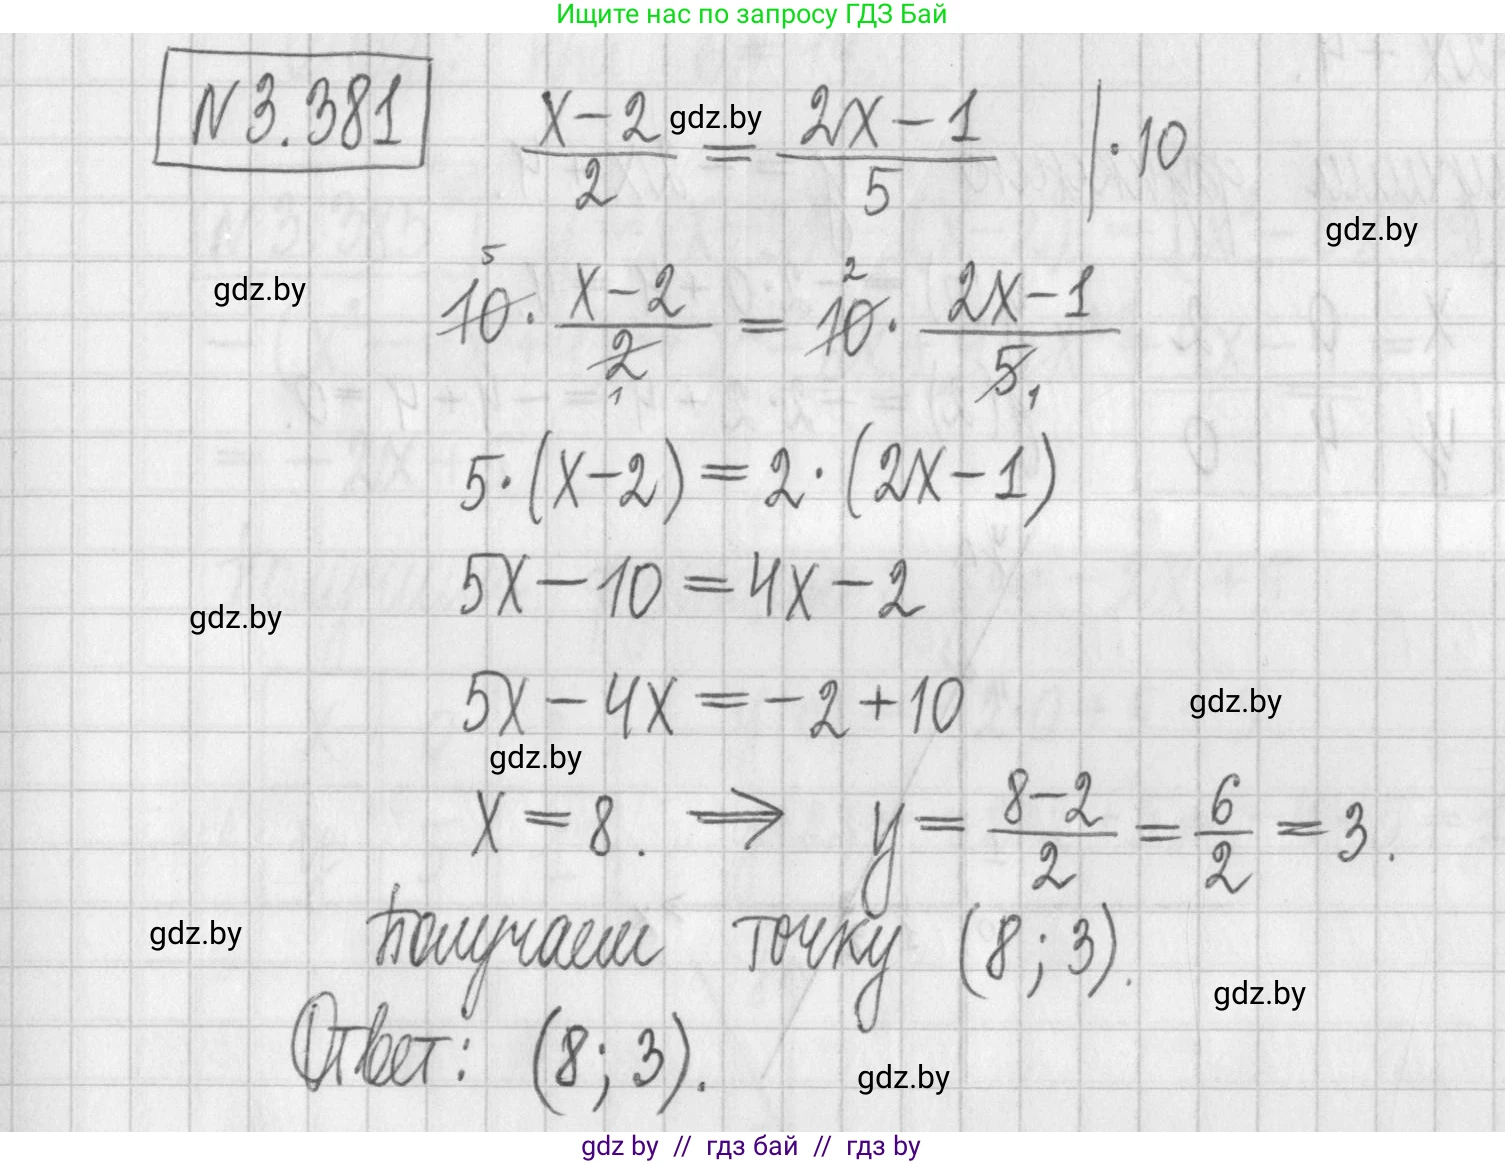 Ищите нас по запросу ГДЗ Бай
N 3.381
(x-2)/2 = (2x-1)/5 | · 10
gdz.by
gdz.by
gdz.by
10 · (x-2)/2 = 10 · (2x-1)/5
5 2
1 1
5·(x-2) = 2·(2x-1)
5x-10 = 4x-2
gdz.by
5x-4x = -2+10
gdz.by
gdz.by
x = 8. ⇒ y = (8-2)/2 = 6/2 = 3.
Получаем точку (8; 3).
gdz.by
gdz.by
Ответ: (8; 3).
gdz.by
gdz by // гдз бай // гдз by